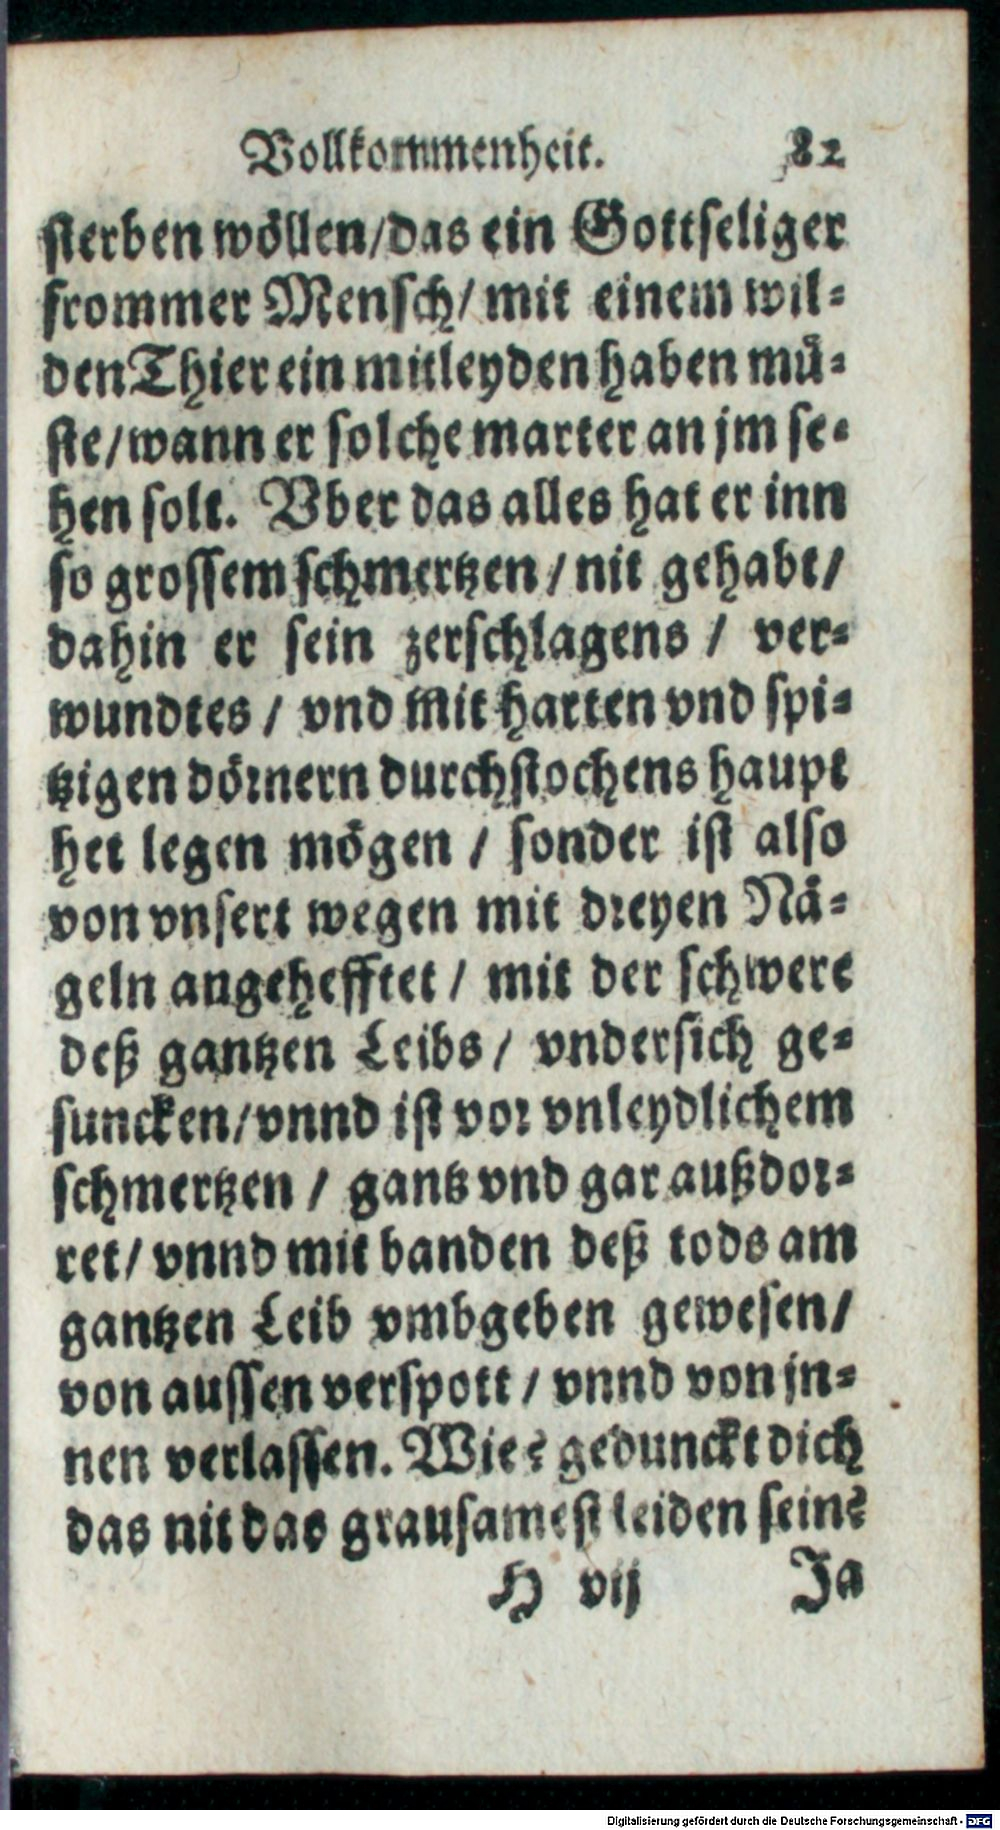 Vollkommenheit. 82
sterben wöllen/das ein Gottseliger
frommer Mensch/ mit einem wil⸗
den Thier ein mitleyden haben mü⸗
ste/wann er solche marter an jm se⸗
hen solt. Vber das alles hat er inn
so grossem schmertzen / nit gehabt/
dahin er sein zerschlagens / ver⸗
wundtes / vnd mit harten vnd spi⸗
tzigen dörnern durchstochens haupt
het legen mögen / sonder ist also
von vnsert wegen mit dreyen Nä⸗
geln angehefftet / mit der schwere
deß gantzen Leibs / vndersich ge⸗
suncken/vnnd ist vor vnleydlichem
schmertzen / gantz vnd gar außdor⸗
ret/ vnnd mit banden deß tods am
gantzen Leib vmbgeben gewesen/
von aussen verspott / vnnd von jn⸗
nen verlassen. Wie? gedunckt dich
das nit das grausamest leiden sein?
H vij Ja
Digitalisierung gefördert durch die Deutsche Forschungsgemeinschaft - DFG